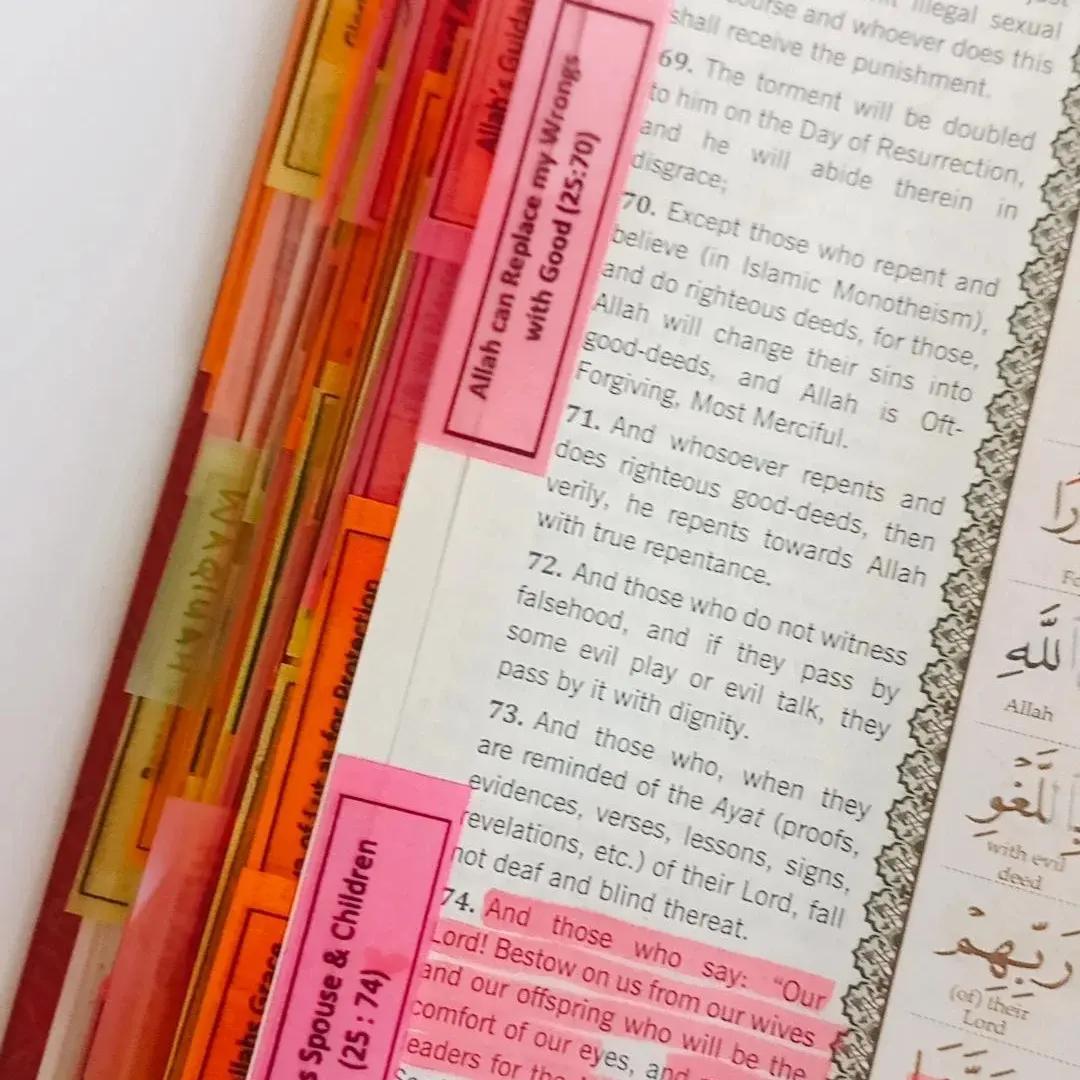 illegal sexual
and whoever does this
shall receive the punishment.
69. The torment will be doubled
to him on the Day of Resurrection,
and he will abide therein in
disgrace;
70. Except those who repent and
believe (in Islamic Monotheism),
and do righteous deeds, for those,
Allah will change their sins into
good-deeds, and Allah is Oft-
Forgiving, Most Merciful.
71. And whosoever repents and
does righteous good-deeds, then
verily, he repents towards Allah
with true repentance.
72. And those who do not witness
falsehood, and if they pass by
some evil play or evil talk, they
pass by it with dignity.
73. And those who, when they
are reminded of the Ayat (proofs,
evidences, verses, lessons, signs,
revelations, etc.) of their Lord, fall
not deaf and blind thereat.
74. And those who say: "Our
Lord! Bestow on us from our wives
and our offspring who will be the
comfort of our eyes, and
leaders for the
Allah can Replace my Wrongs
with Good (25:70)
Spouse & Children
(25 : 74)
Allah's
for Protection
Grace
WAQIAH
اللَّهِ
Allah
with evil
deed
رَبِّهِمْ
(of) their
Lord